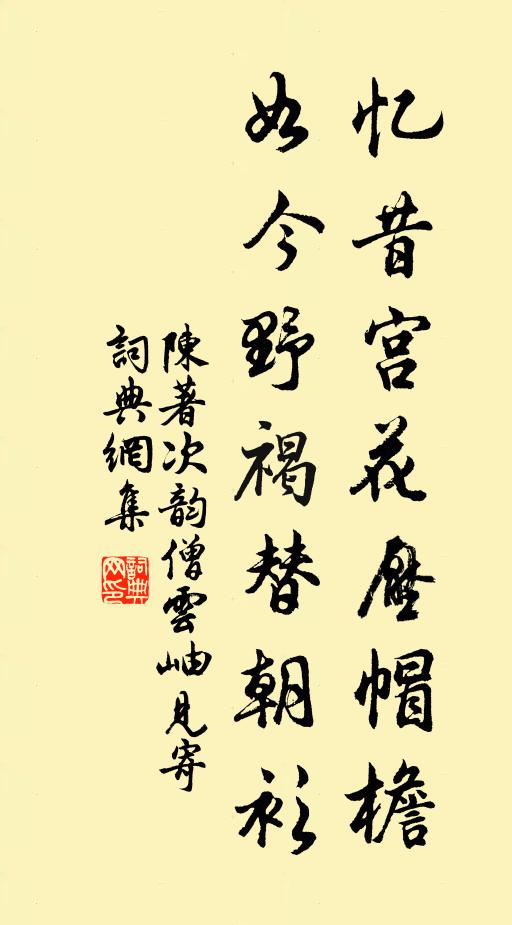 忆昔宫花压帽檐
如今野褐替朝衫
陳著次韵僧雲岫見寄
詞典網集
詞典网印